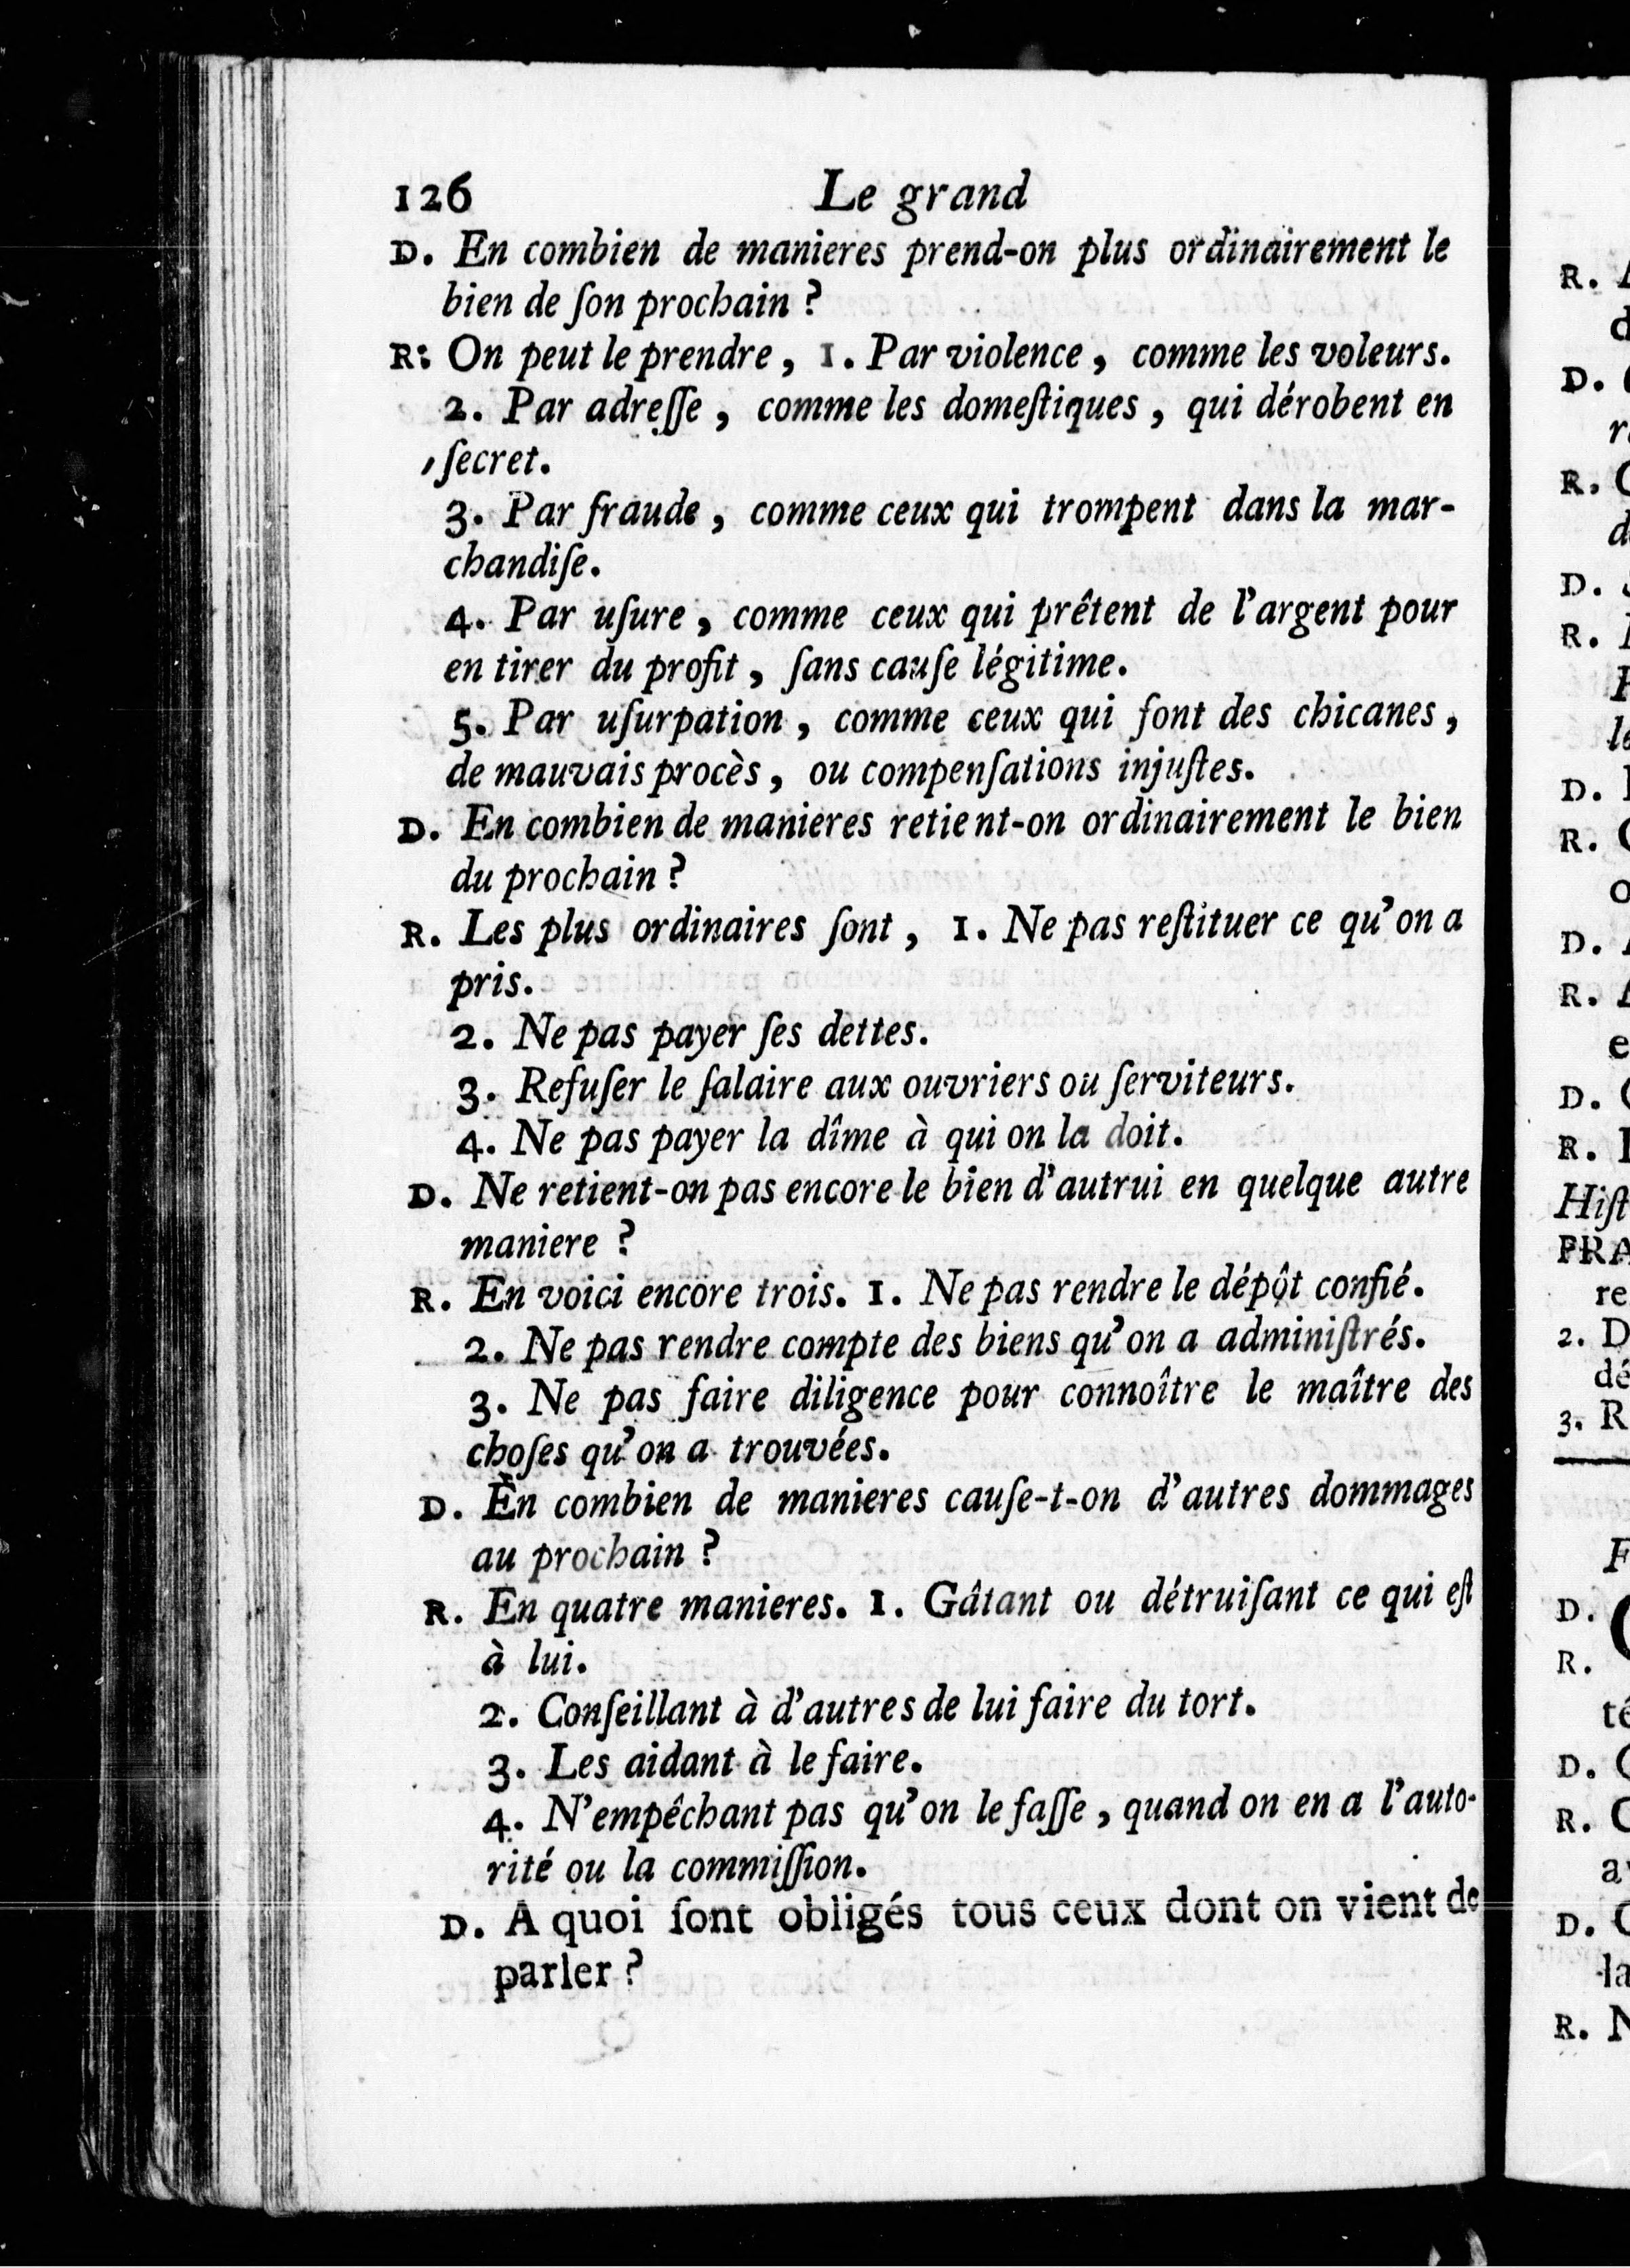 126 Le grand
D. En combien de manieres prend-on plus ordinairement le
bien de ſon prochain ?
R: On peut le prendre, 1. Par violence, comme les voleurs.
2. Par adreſſe, comme les domeſtiques, qui dérobent en
ſecret.
3. Par fraude, comme ceux qui trompent dans la mar-
chandiſe.
4. Par uſure, comme ceux qui prêtent de l'argent pour
en tirer du profit, ſans cauſe légitime.
5. Par uſurpation, comme ceux qui font des chicanes,
de mauvais procès, ou compenſations injuſtes.
D. En combien de manieres retient-on ordinairement le bien
du prochain ?
R. Les plus ordinaires ſont, 1. Ne pas reſtituer ce qu'on a
pris.
2. Ne pas payer ſes dettes.
3. Refuſer le ſalaire aux ouvriers ou ſerviteurs.
4. Ne pas payer la dîme à qui on la doit.
D. Ne retient-on pas encore le bien d'autrui en quelque autre
maniere ?
R. En voici encore trois. 1. Ne pas rendre le dépôt confié.
2. Ne pas rendre compte des biens qu'on a adminiſtrés.
3. Ne pas faire diligence pour connoître le maître des
choſes qu'on a trouvées.
D. En combien de manieres cauſe-t-on d'autres dommages
au prochain ?
R. En quatre manieres. 1. Gâtant ou détruiſant ce qui eſt
à lui.
2. Conſeillant à d'autres de lui faire du tort.
3. Les aidant à le faire.
4. N'empêchant pas qu'on le faſſe, quand on en a l'auto-
rité ou la commiſſion.
D. A quoi ſont obligés tous ceux dont on vient de
parler ?